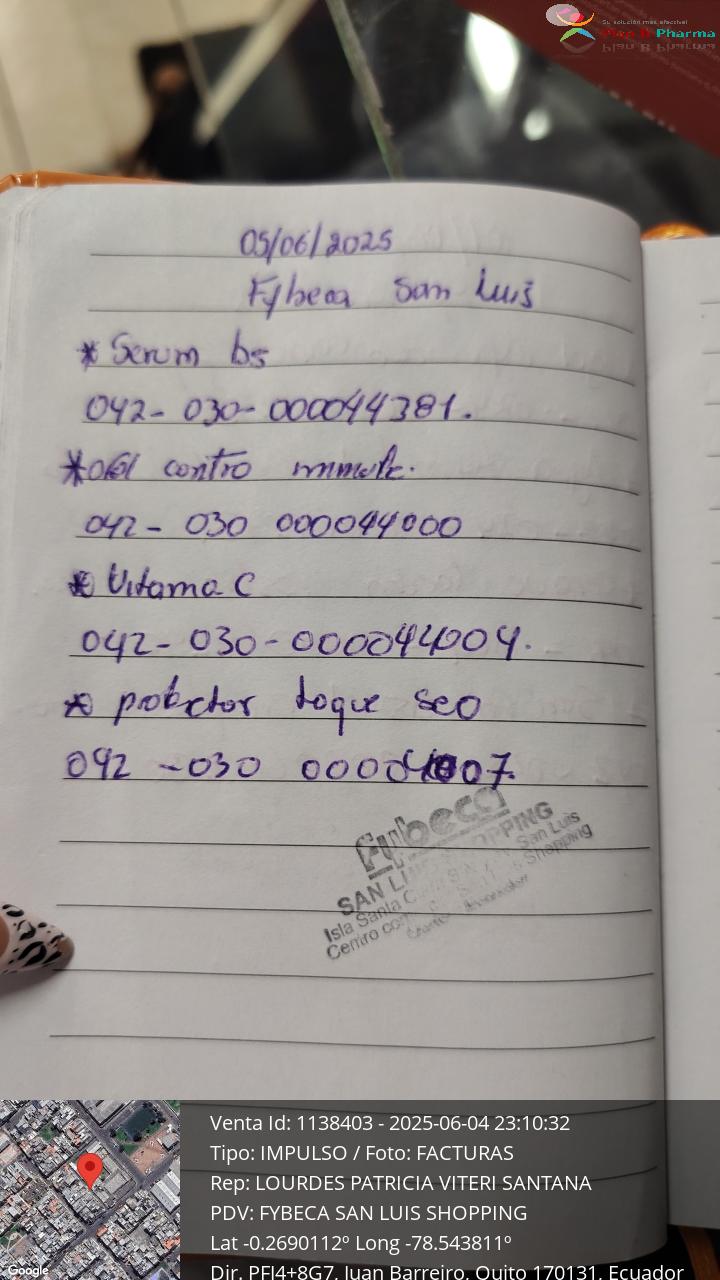 Su solución más efectiva!
Pharma
05/06/2025
Fybeca San Luis
* Serum b5
042- 030- 000044381.
contro
042 - 030 000044000
* Vitama C
042- 030- 000044004.
* protector toque seo
042 -030
fybeca
SAN LUIS SHOPPING
Isla Santa San Luis
Centro Shopping
Venta Id: 1138403 - 2025-06-04 23:10:32
Tipo: IMPULSO / Foto: FACTURAS
Rep: LOURDES PATRICIA VITERI SANTANA
PDV: FYBECA SAN LUIS SHOPPING
Lat -0.2690112º Long -78.543811º
Dir. PFJ4+8G7, Juan Barreiro, Quito 170131, Ecuador
Google